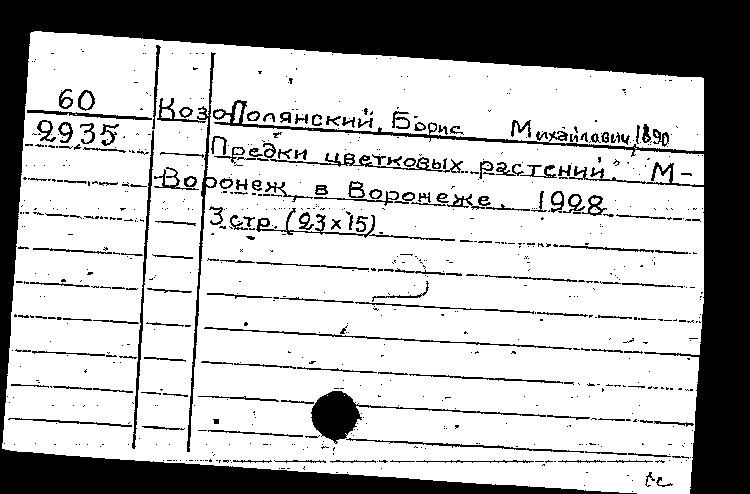 60
2935
Козо-Полянский, Борис Михайлович, 1890
Предки цветковых растений. М-
Воронеж, в Воронеже. 1928
3 стр. (23x15).